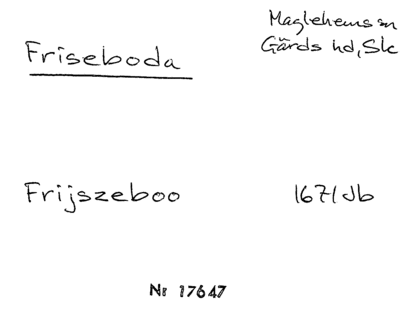 Friseboda
Maglehems sn
Gärds hd, Sk
Frijszeboo
1671 Jb
Nr 17647